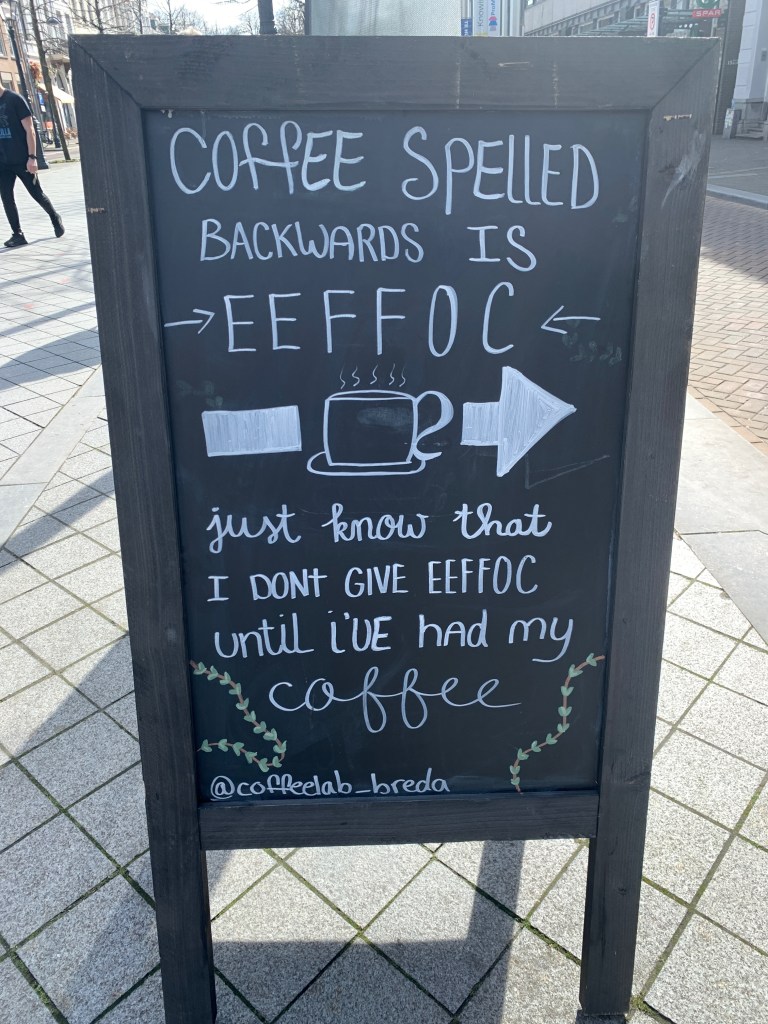 COFFEE SPELLED
BACKWARDS IS
→ EEFFOC ←
just know that
I DONT GIVE EEFFOC
until i'VE had my
coffee
@coffeelab_breda
SPAR